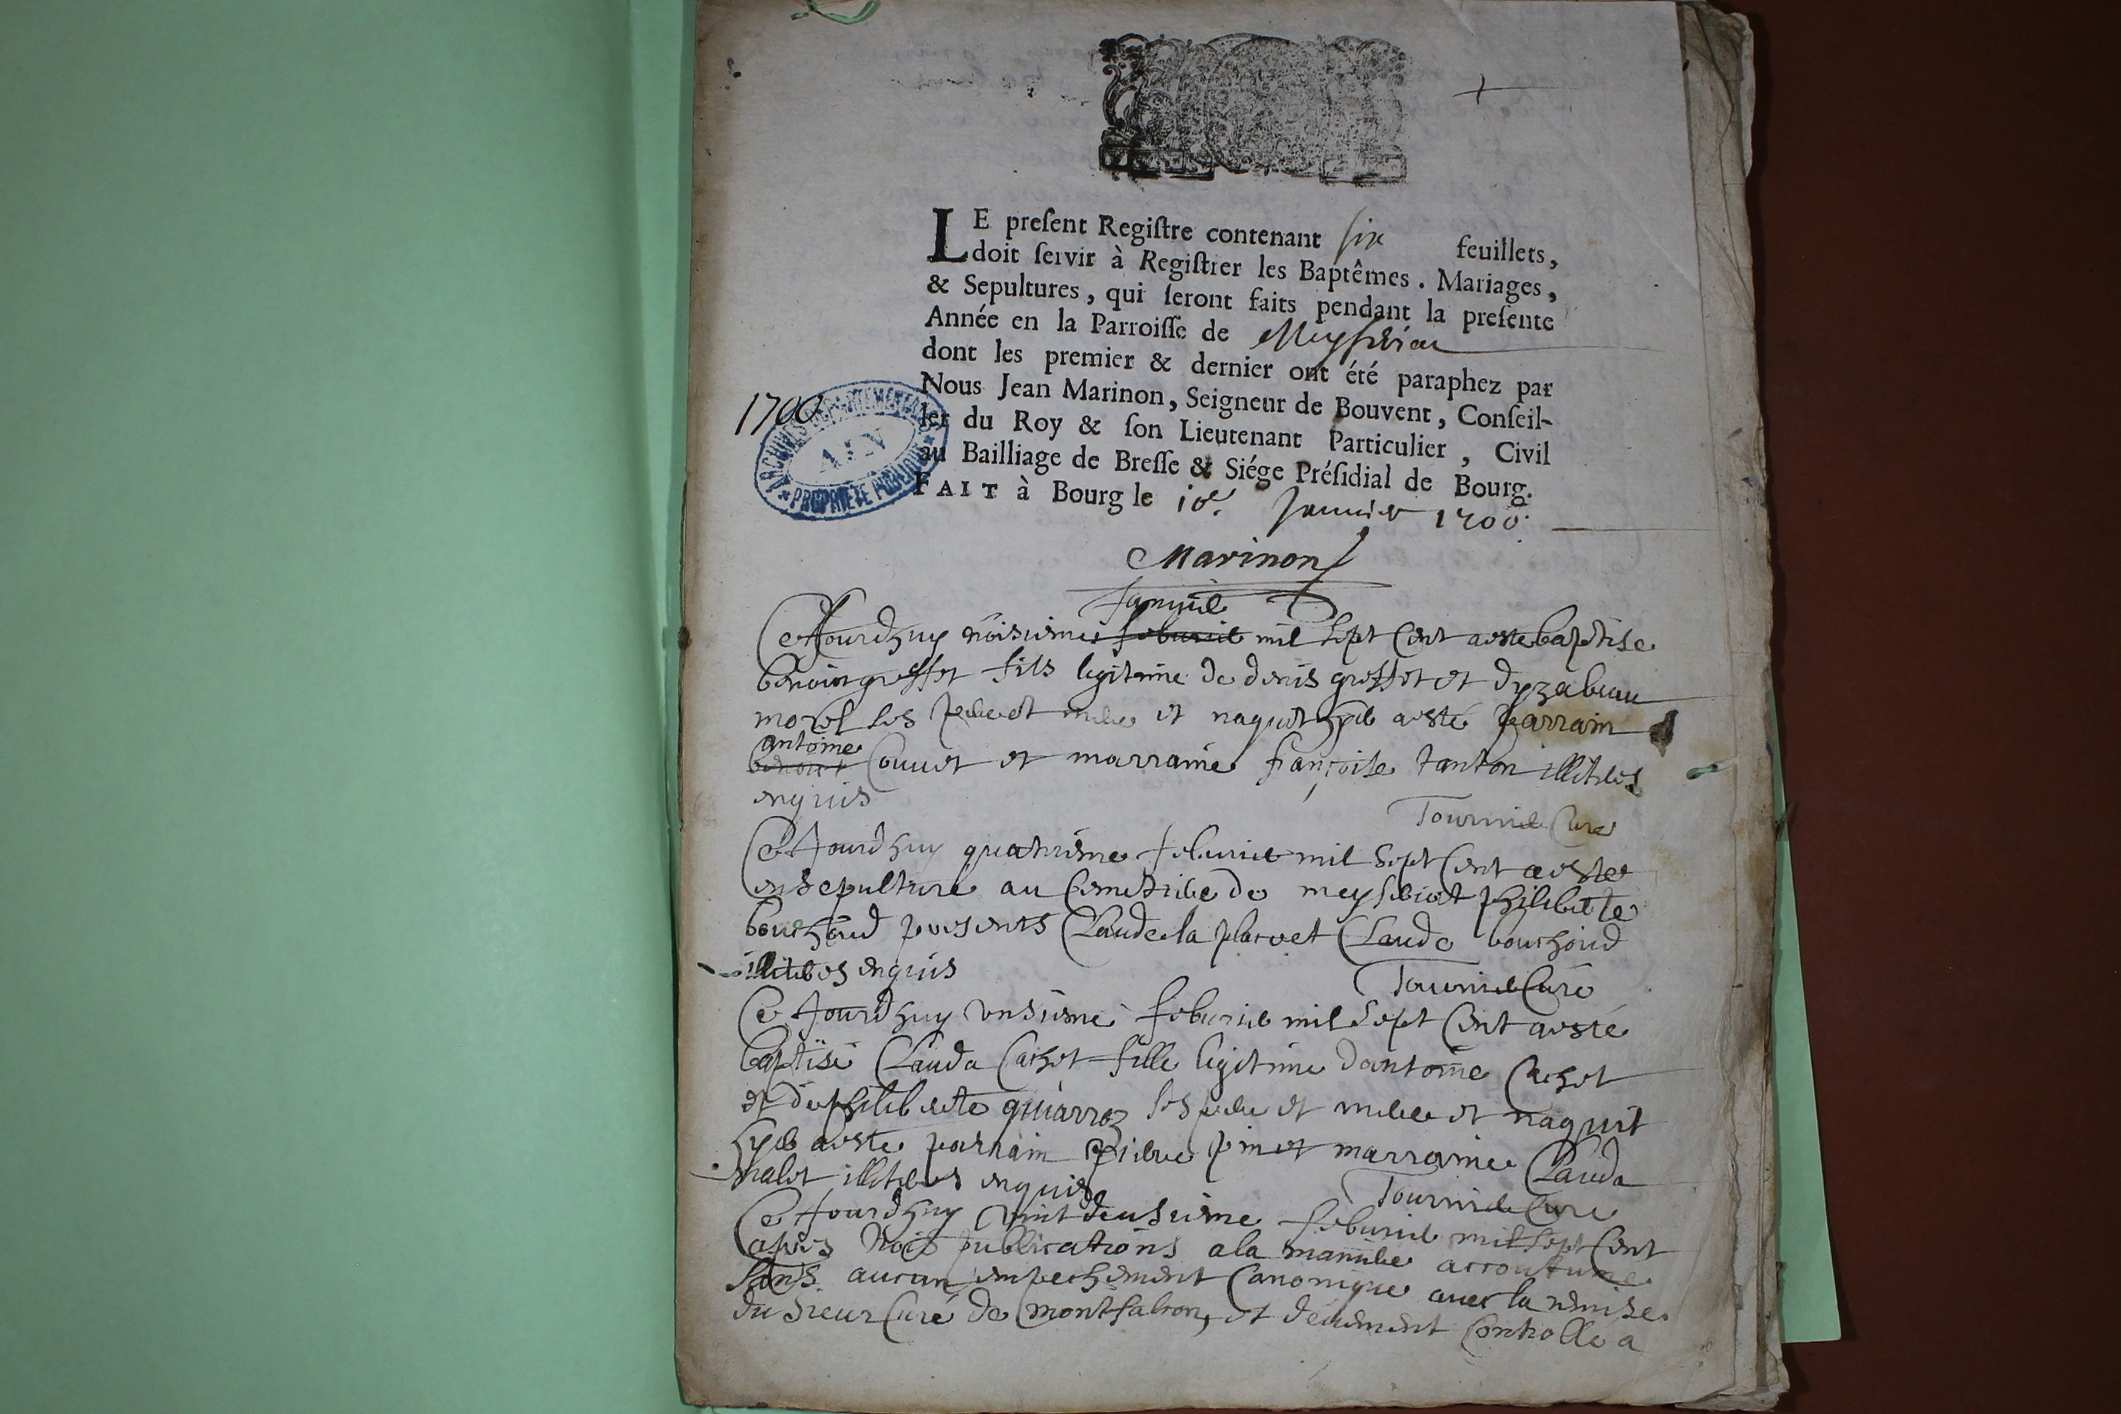 LE preſent Regiſtre contenant six feuillets,
doit ſervir à Regiſtrer les Baptêmes. Mariages,
& Sepultures, qui ſeront faits pendant la preſente
Année en la Parroiſſe de Meyseriat
dont les premier & dernier ont été paraphez par
Nous Jean Marinon, Seigneur de Bouvent, Conſeil-
ler du Roy & ſon Lieutenant Particulier, Civil
au Bailliage de Breſſe & Siége Préſidial de Bourg.
FAIT à Bourg le 10e. Janvier 1700.
1700
ARCHIVES DEPARTEMENTALES
AIN
PROPRIETE PUBLIQUE
Marinon
januier
Ce Jourdhuy troisieme feburier mil sept Cent a este baptise
benoit gresset fils legitime de denis gresset et dyzabeau
morel ses pere et mere et naquit hyer a esté parrain
antoine
benoit Couuet et marraine françoise tanton illiteres
enquis
Tournier Cure
Ce Jourdhuy quatrieme feburier mil sept Cent a este
ensepulture au Cemetiere de meyseriat philiberte
bouchard presents Claude la place et Claude bouchard
illiteres enquis
Tournier Curé
Ce Jourdhuy unsieme feburier mil sept Cent a esté
baptisé Clauda Cachet fille legitime dantoine Cachet
et de philiberte quiarroz ses pere et mere et naquit
hyer a este parrain pierre pin et marraine Clauda
malet illiteres enquis
Tournier Cure
Ce Jourdhuy vint deusieme feburier mil sept Cent
apres trois publications a la maniere accoutumé
sans aucun empechement Canonique auec la remise
du sieur Curé de montfalcon, et deuement Controlle a